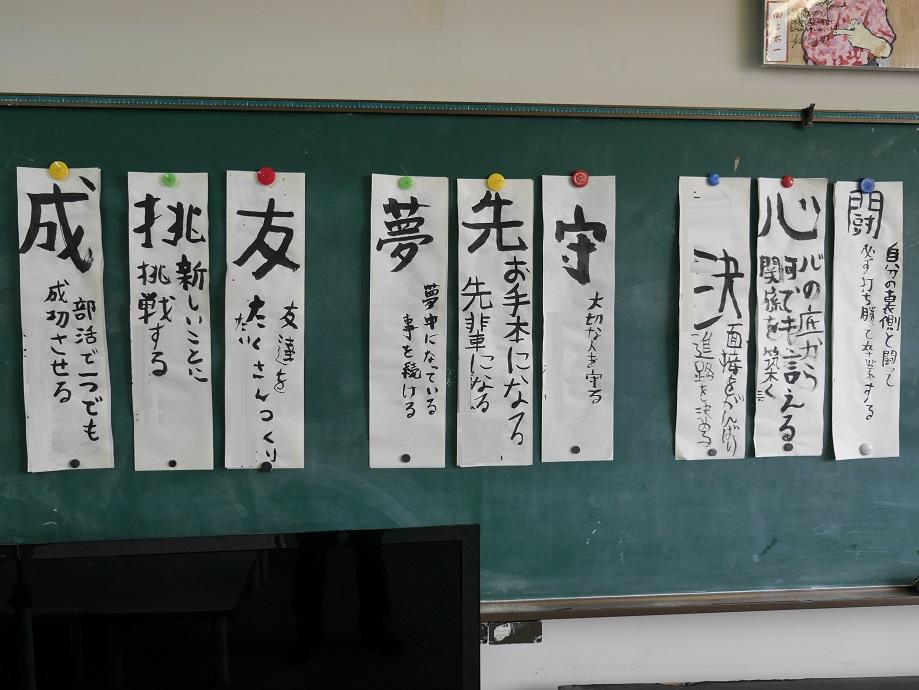 闘
自分の裏側と闘って
必ず打ち勝って卒業する
心
心の底から
何でも言える
関係を築く
決
面接をがんばり
進路を決める
守
大切な人を守る
先
お手本になる
先輩になる
夢
夢中になっている
事を続ける
友
友達を
たくさんつくり
たい
挑
新しいことに
挑戦する
成
部活で一つでも
成功させる